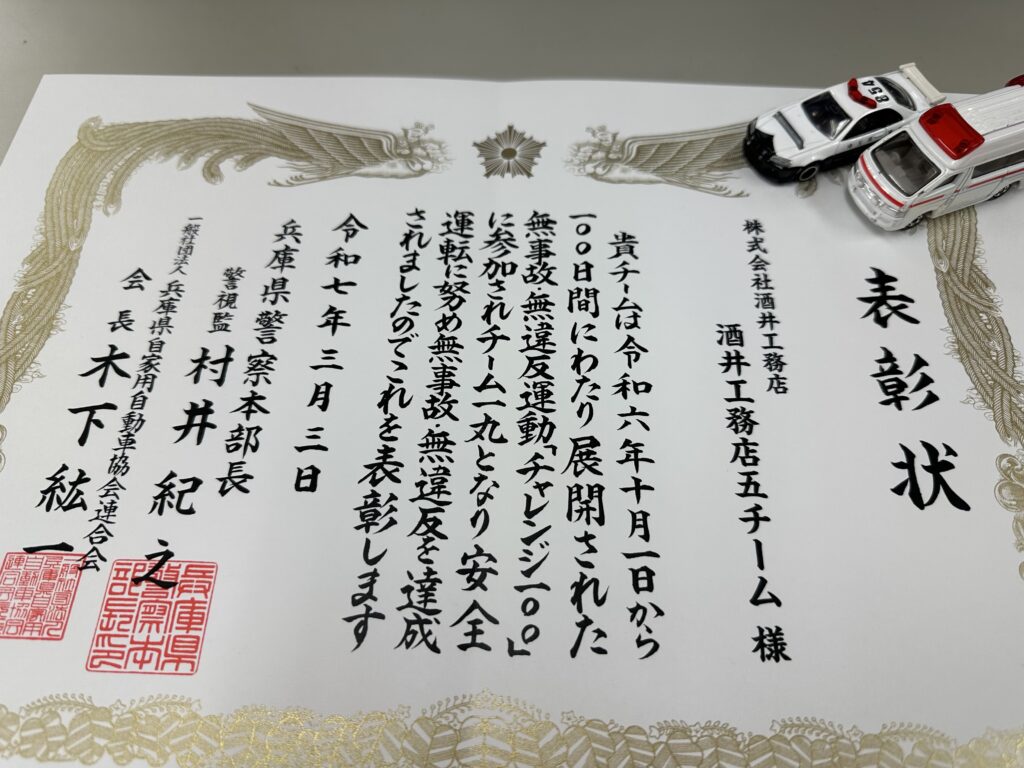 表彰状
株式会社酒井工務店
酒井工務店五チーム 様
貴チームは令和六年十月一日から
一〇〇日間にわたり展開された
無事故・無違反運動「チャレンジ一〇〇」
に参加されチーム一丸となり安全
運転に努め無事故・無違反を達成
されましたのでこれを表彰します
令和七年三月三日
兵庫県警察本部長
警視監 村井紀之
一般社団法人 兵庫県自家用自動車協会連合会
会長 木下紘一
兵庫県
警察本
部長印
854